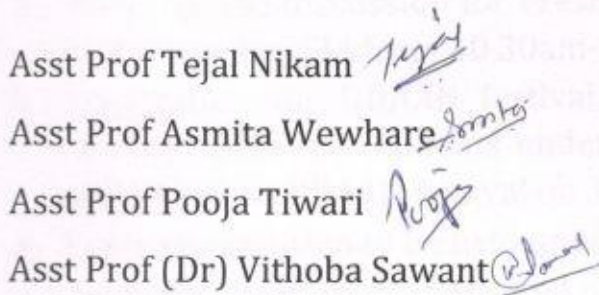 Asst Prof Tejal Nikam Tejal
Asst Prof Asmita Wewhare Asmita
Asst Prof Pooja Tiwari Pooja
Asst Prof (Dr) Vithoba Sawant